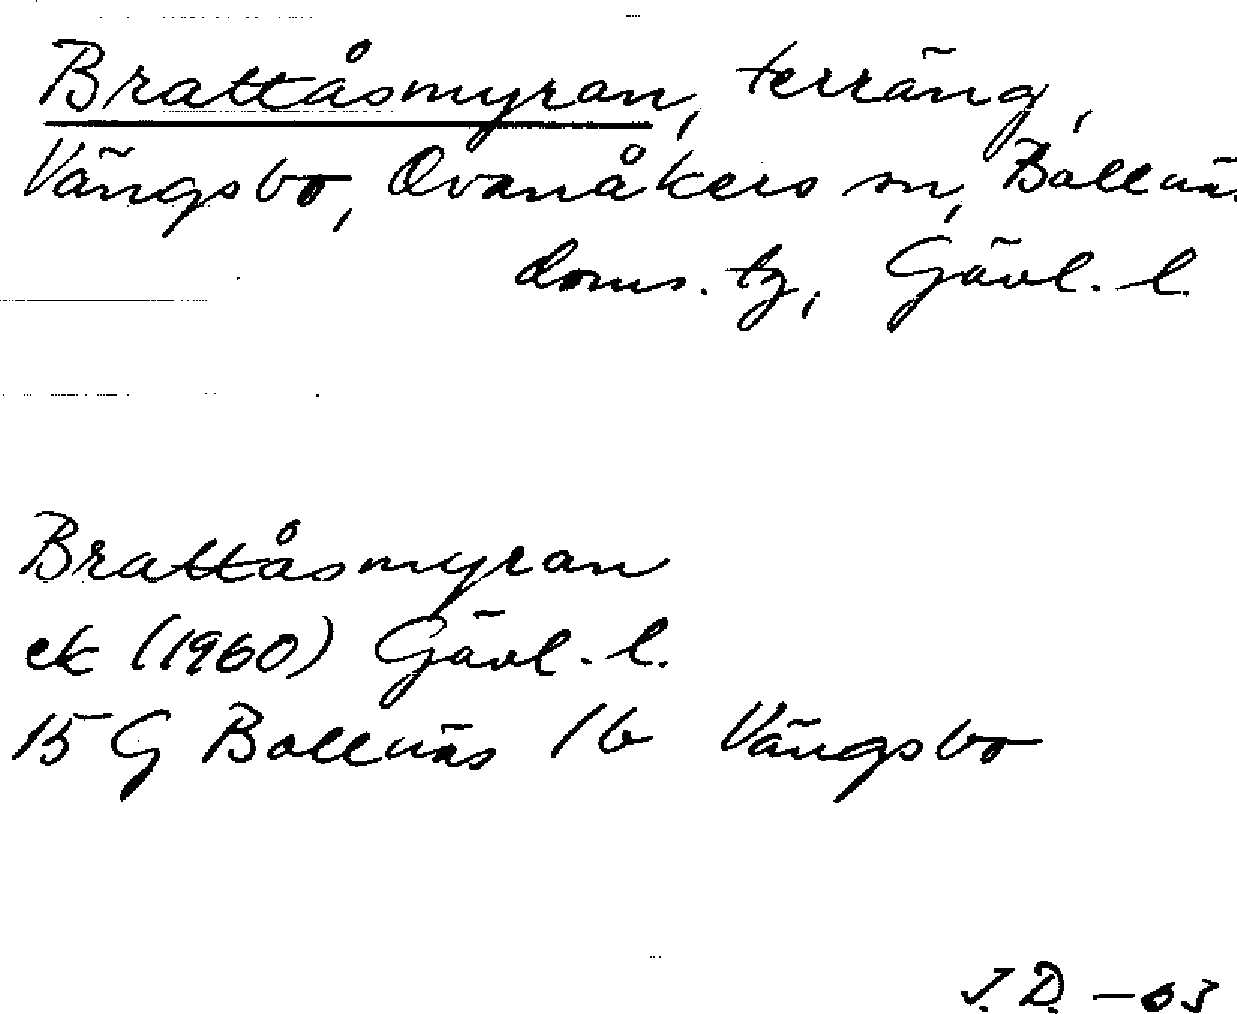 Brattåsmyran, terräng,
Vängsbo, Ovanåkers sn, Bollnä
doms. tg, Gävl. l.
Brattåsmyran
ek (1960) Gävl. l.
15 G Bollnäs 1b Vängsbo
J. D. -03